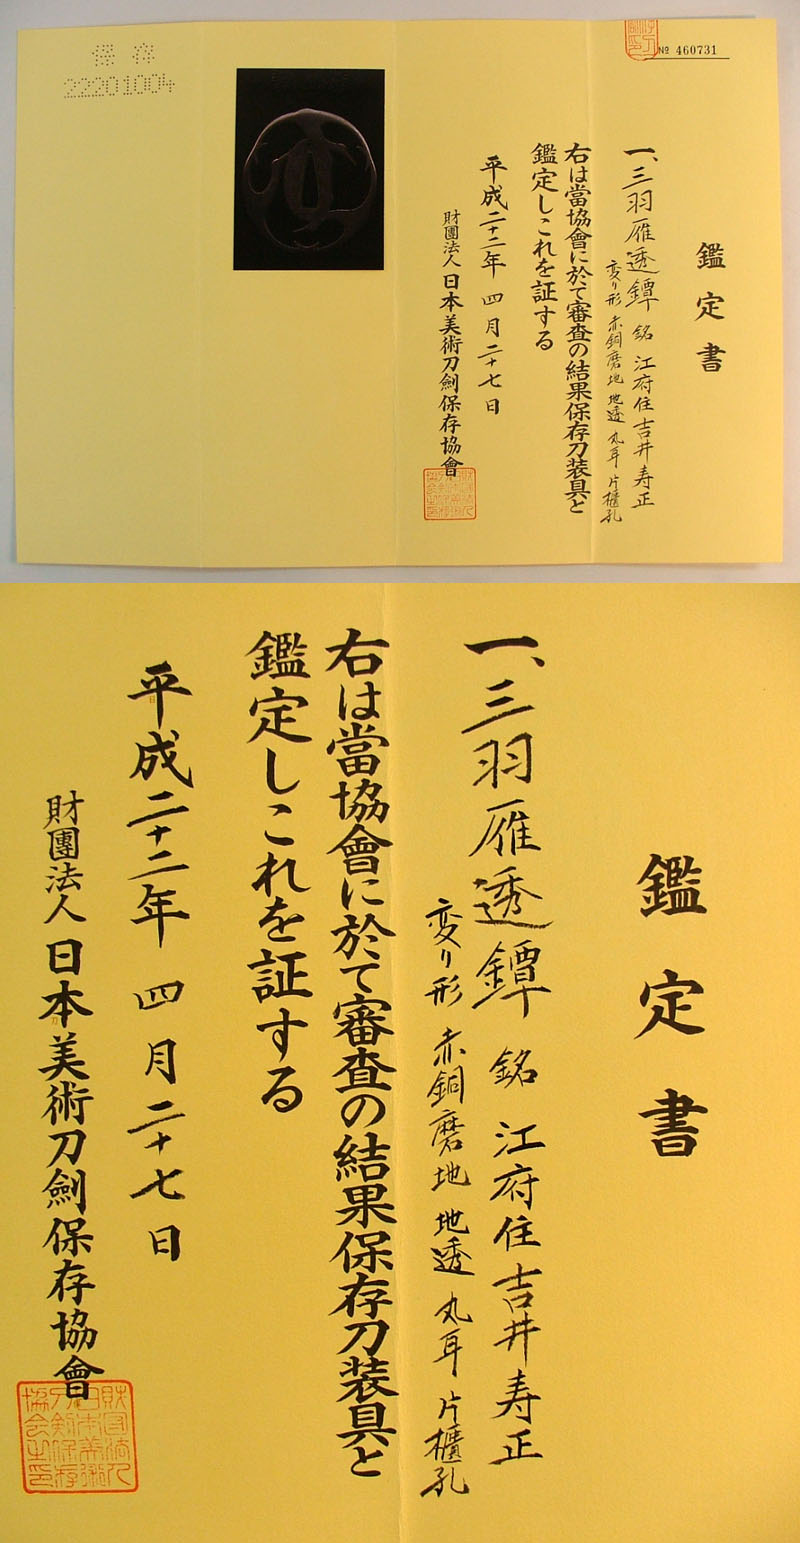 № 460731
鑑定書
一、三羽雁透鐔 銘 江府住吉井寿正
変り形 赤銅磨地 地透 丸耳 片櫃孔
右は當協會に於て審査の結果保存刀装具と
鑑定しこれを証する
平成二十二年 四月二十七日
財團法人 日本美術刀劍保存協會
保存
22201004
鑑定書
一、三羽雁透鐔 銘 江府住吉井寿正
変り形 赤銅磨地 地透 丸耳 片櫃孔
右は當協會に於て審査の結果保存刀装具と
鑑定しこれを証する
平成二十二年 四月二十七日
財團法人 日本美術刀劍保存協會